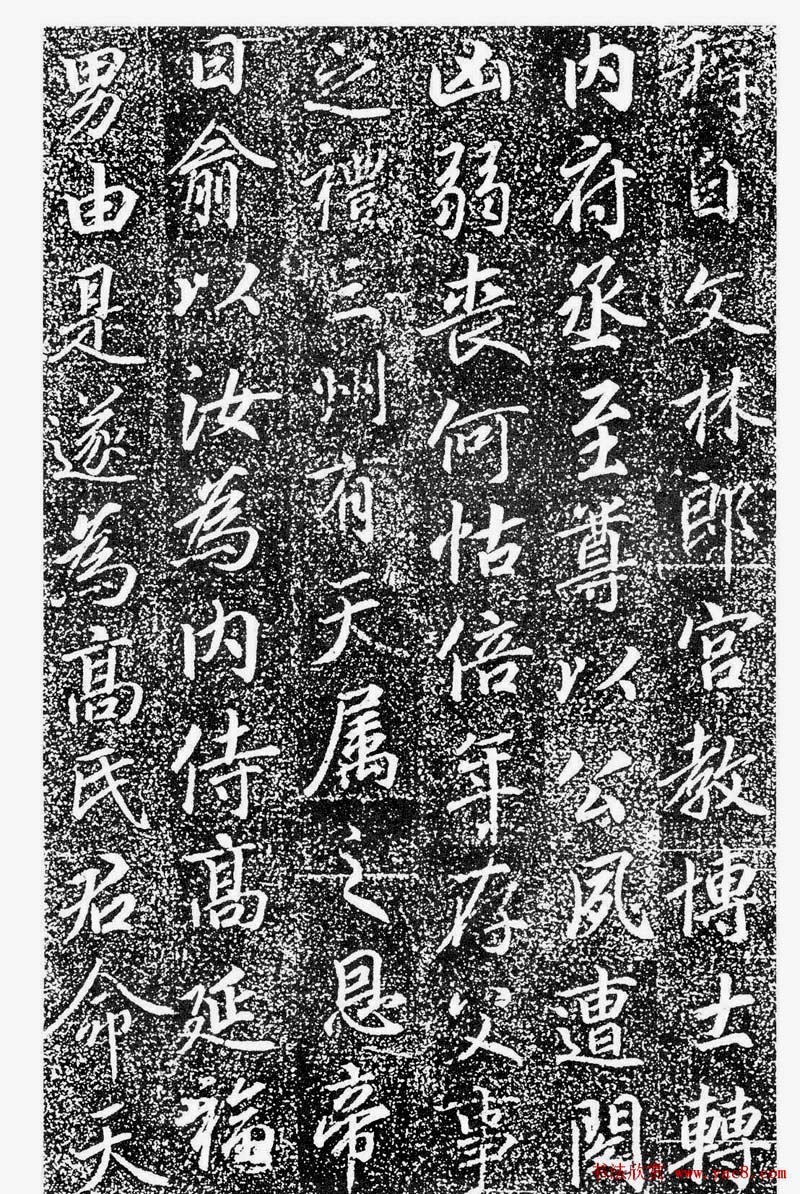 稱自文林郎宮教博士轉
内府丞至尊以公夙遭閔
凶弱喪何怙倍年存父事
之禮三州有天属之恩帝
曰俞以汝為内侍髙延福
男由是遂為髙氏君命天
书法欣赏 www.yac8.com